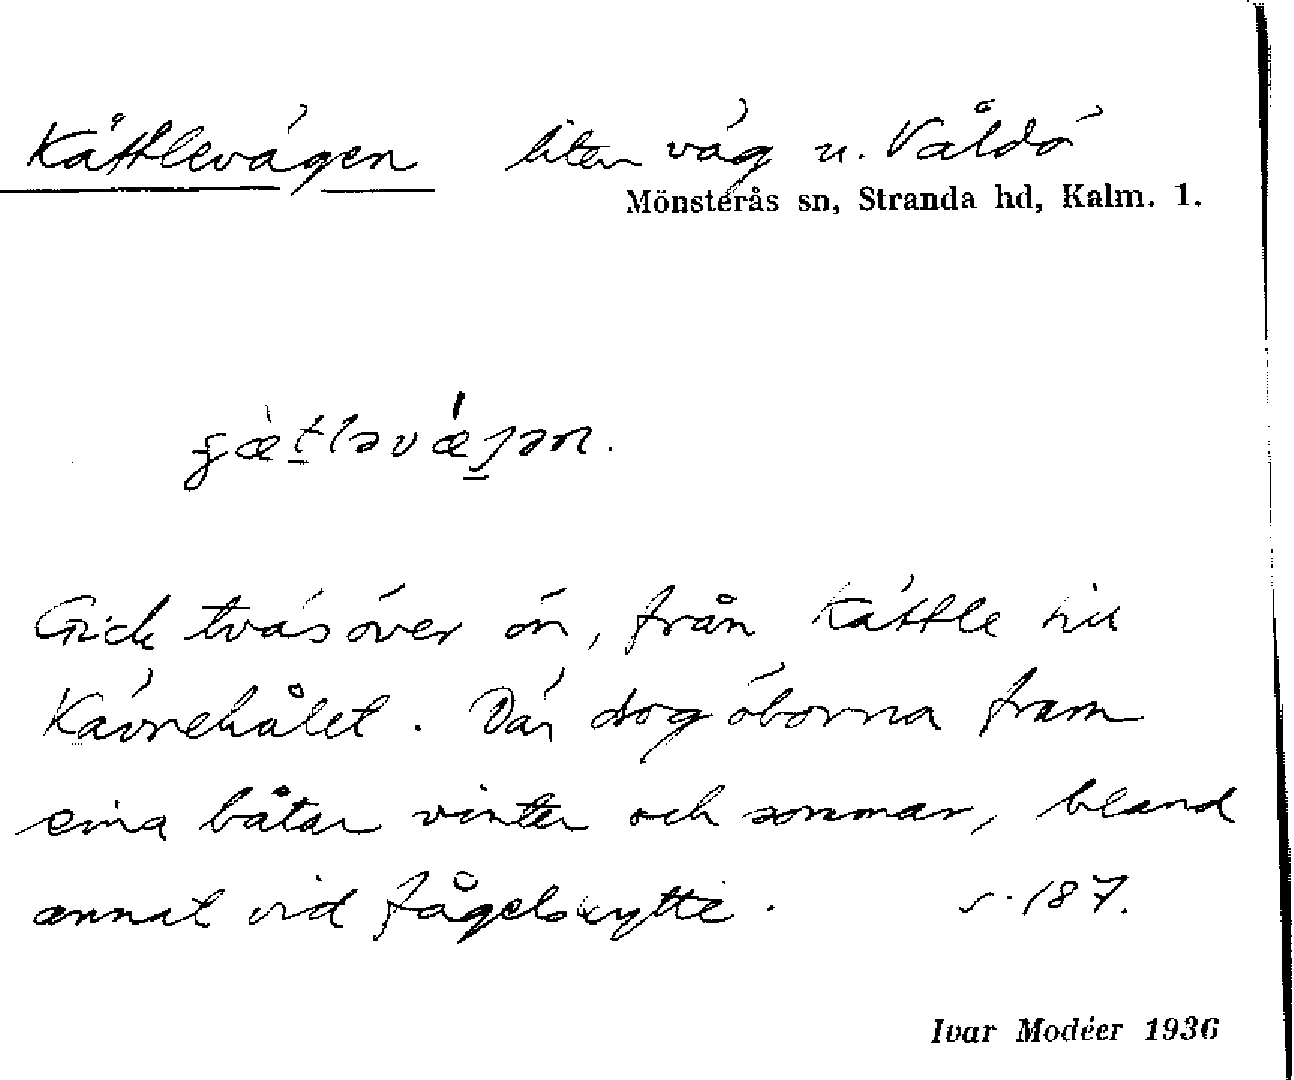 Kättlevägen liten väg u. Våldö
Mönsterås sn, Stranda hd, Kalm. 1.
Gick tväsöver ön, från Kättle till
Kävnehålet. Där drog öborna fram
sina båtar vinter och sommar, bland
annat vid fågelskytte. s. 187.
Ivar Modéer 1936